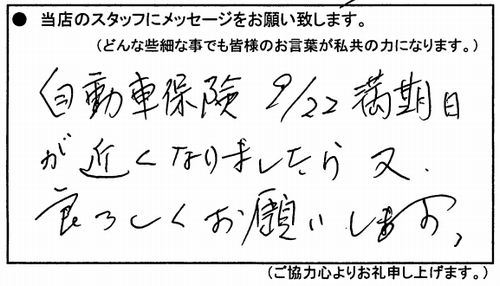 ● 当店のスタッフにメッセージをお願い致します。
（どんな些細な事でも皆様のお言葉が私共の力になります。）
自動車保険 9/22 満期日
が近くなりましたら又、
良ろしくお願いします。
（ご協力心よりお礼申し上げます。）